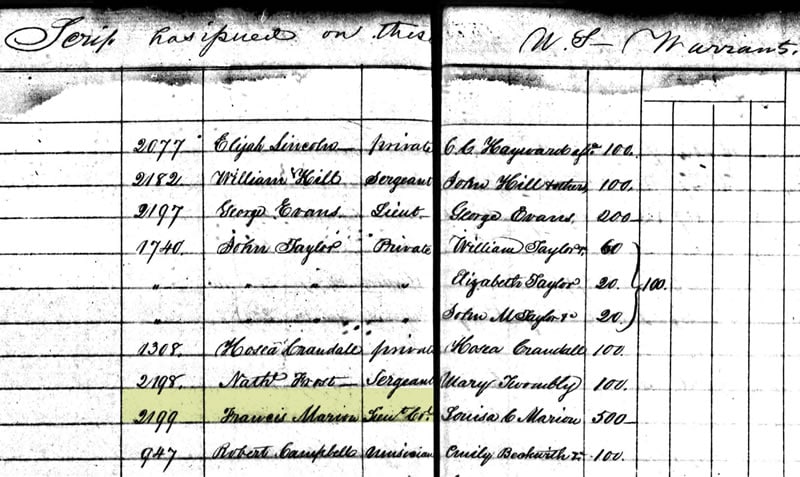 Scrip has issued on these U.S. Warrants.
2077 Elijah Lincoln private C. C. Hayward 100.
2182 William Hill Sergeant John Hill & others 100.
2197 George Evans Lieut. George Evans. 200
1740. John Taylor Private William Taylor 60
" " " " Elizabeth Taylor 20. } 100.
" " " " John M Taylor 20
1308. Hosea Crandall private Hosea Crandall 100.
2198. Nathl Frost Sergeant Mary Twombly 100.
2199 Francis Marion Lieut Col. Louisa C Marion 500
947 Robert Campbell musician Emily Beckwith 100.